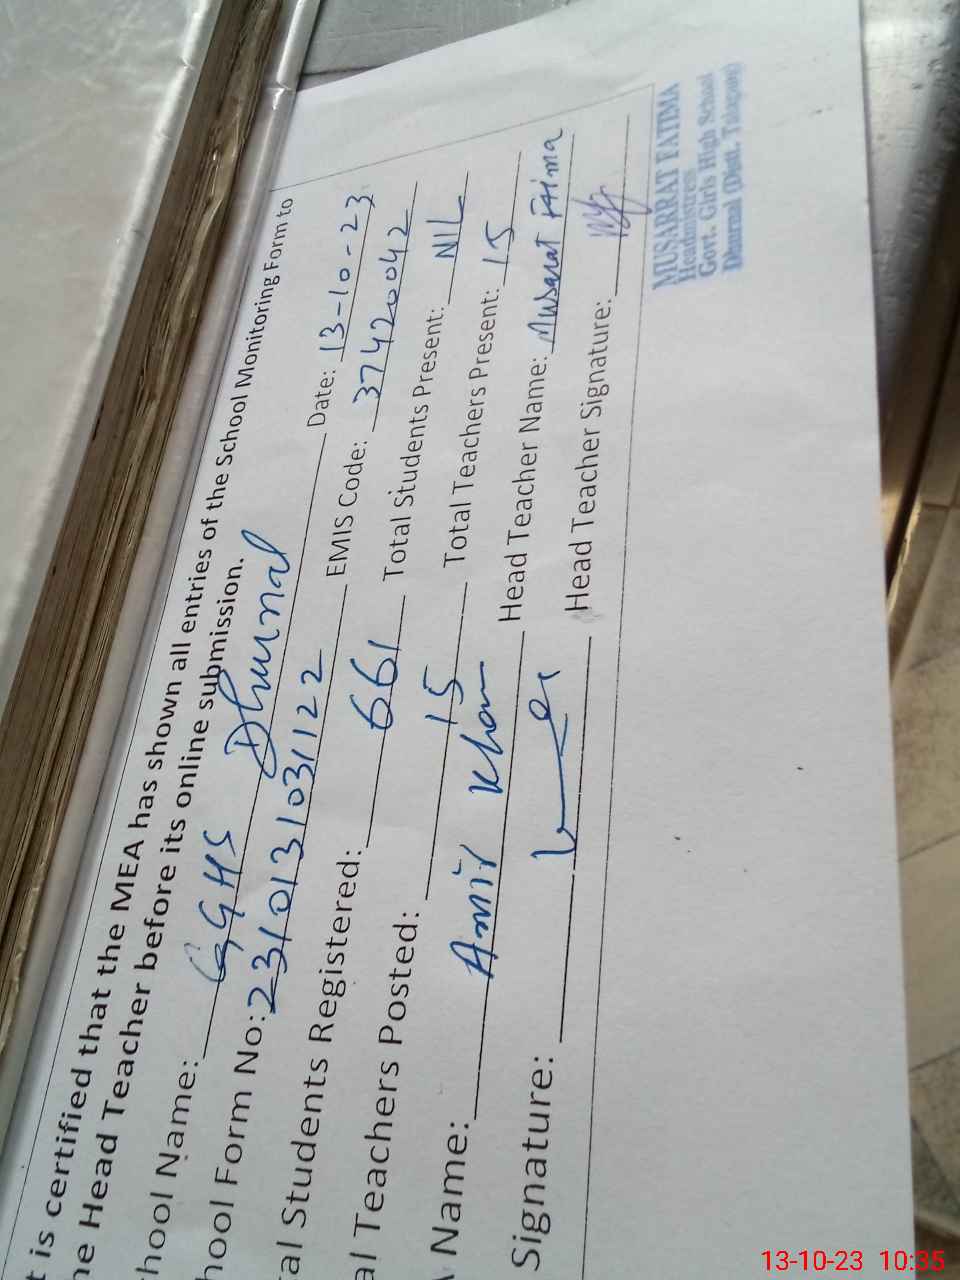 t is certified that the MEA has shown all entries of the School Monitoring Form to
he Head Teacher before its online submission.
hool Name: GGHS Dhurnal Date: 13-10-23
hool Form No: 2310131031122 EMIS Code: 37420042
al Students Registered: 661 Total Students Present: NIL
al Teachers Posted: 15 Total Teachers Present: 15
Name: Amir Khan Head Teacher Name: Musarat Fatima
Signature: Head Teacher Signature:
MUSARRAT FATIMA
Headmistress
Govt. Girls High School
Dhurnal (Distt. Talagang)
13-10-23 10:35